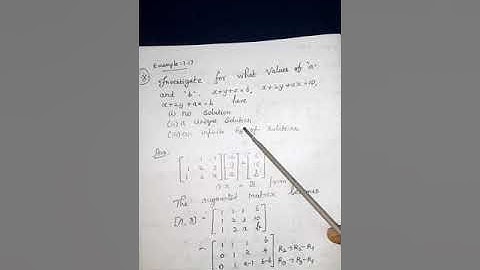 Example 1.17
Investigate for what values of "a"
and "b" x+y+z=6, x+2y+az=10,
x+2y+az=b have
(i) no solution
(ii) a unique solution
(iii) an infinite of solutions
The augmented matrix becomes
[A,B] = [1 1 1 6
1 2 3 10
1 2 a b]
~ [1 1 1 6
0 1 2 4
0 1 a-1 b-6] R2→R2-R1
R3→R3-R1